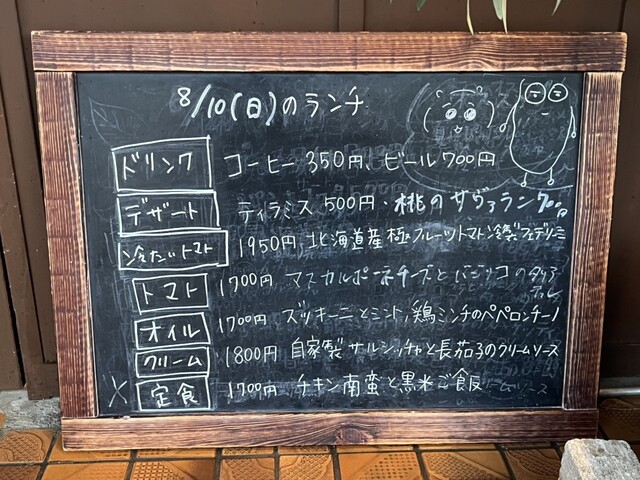 8/10(日)のランチ
ドリンク コーヒー 350円、ビール 700円
デザート ティラミス 500円・桃のサヴァラン 700円
冷たいトマト 1950円 北海道産極フルーツトマト冷製フェデリーニ
トマト 1700円 マスカルポーネチーズとバジリコの
オイル 1700円 ズッキーニとミント、鶏ミンチのペペロンチーノ
クリーム 1800円 自家製サルシッチャと長茄子のクリームソース
定食 1700円 チキン南蛮と黒米ご飯